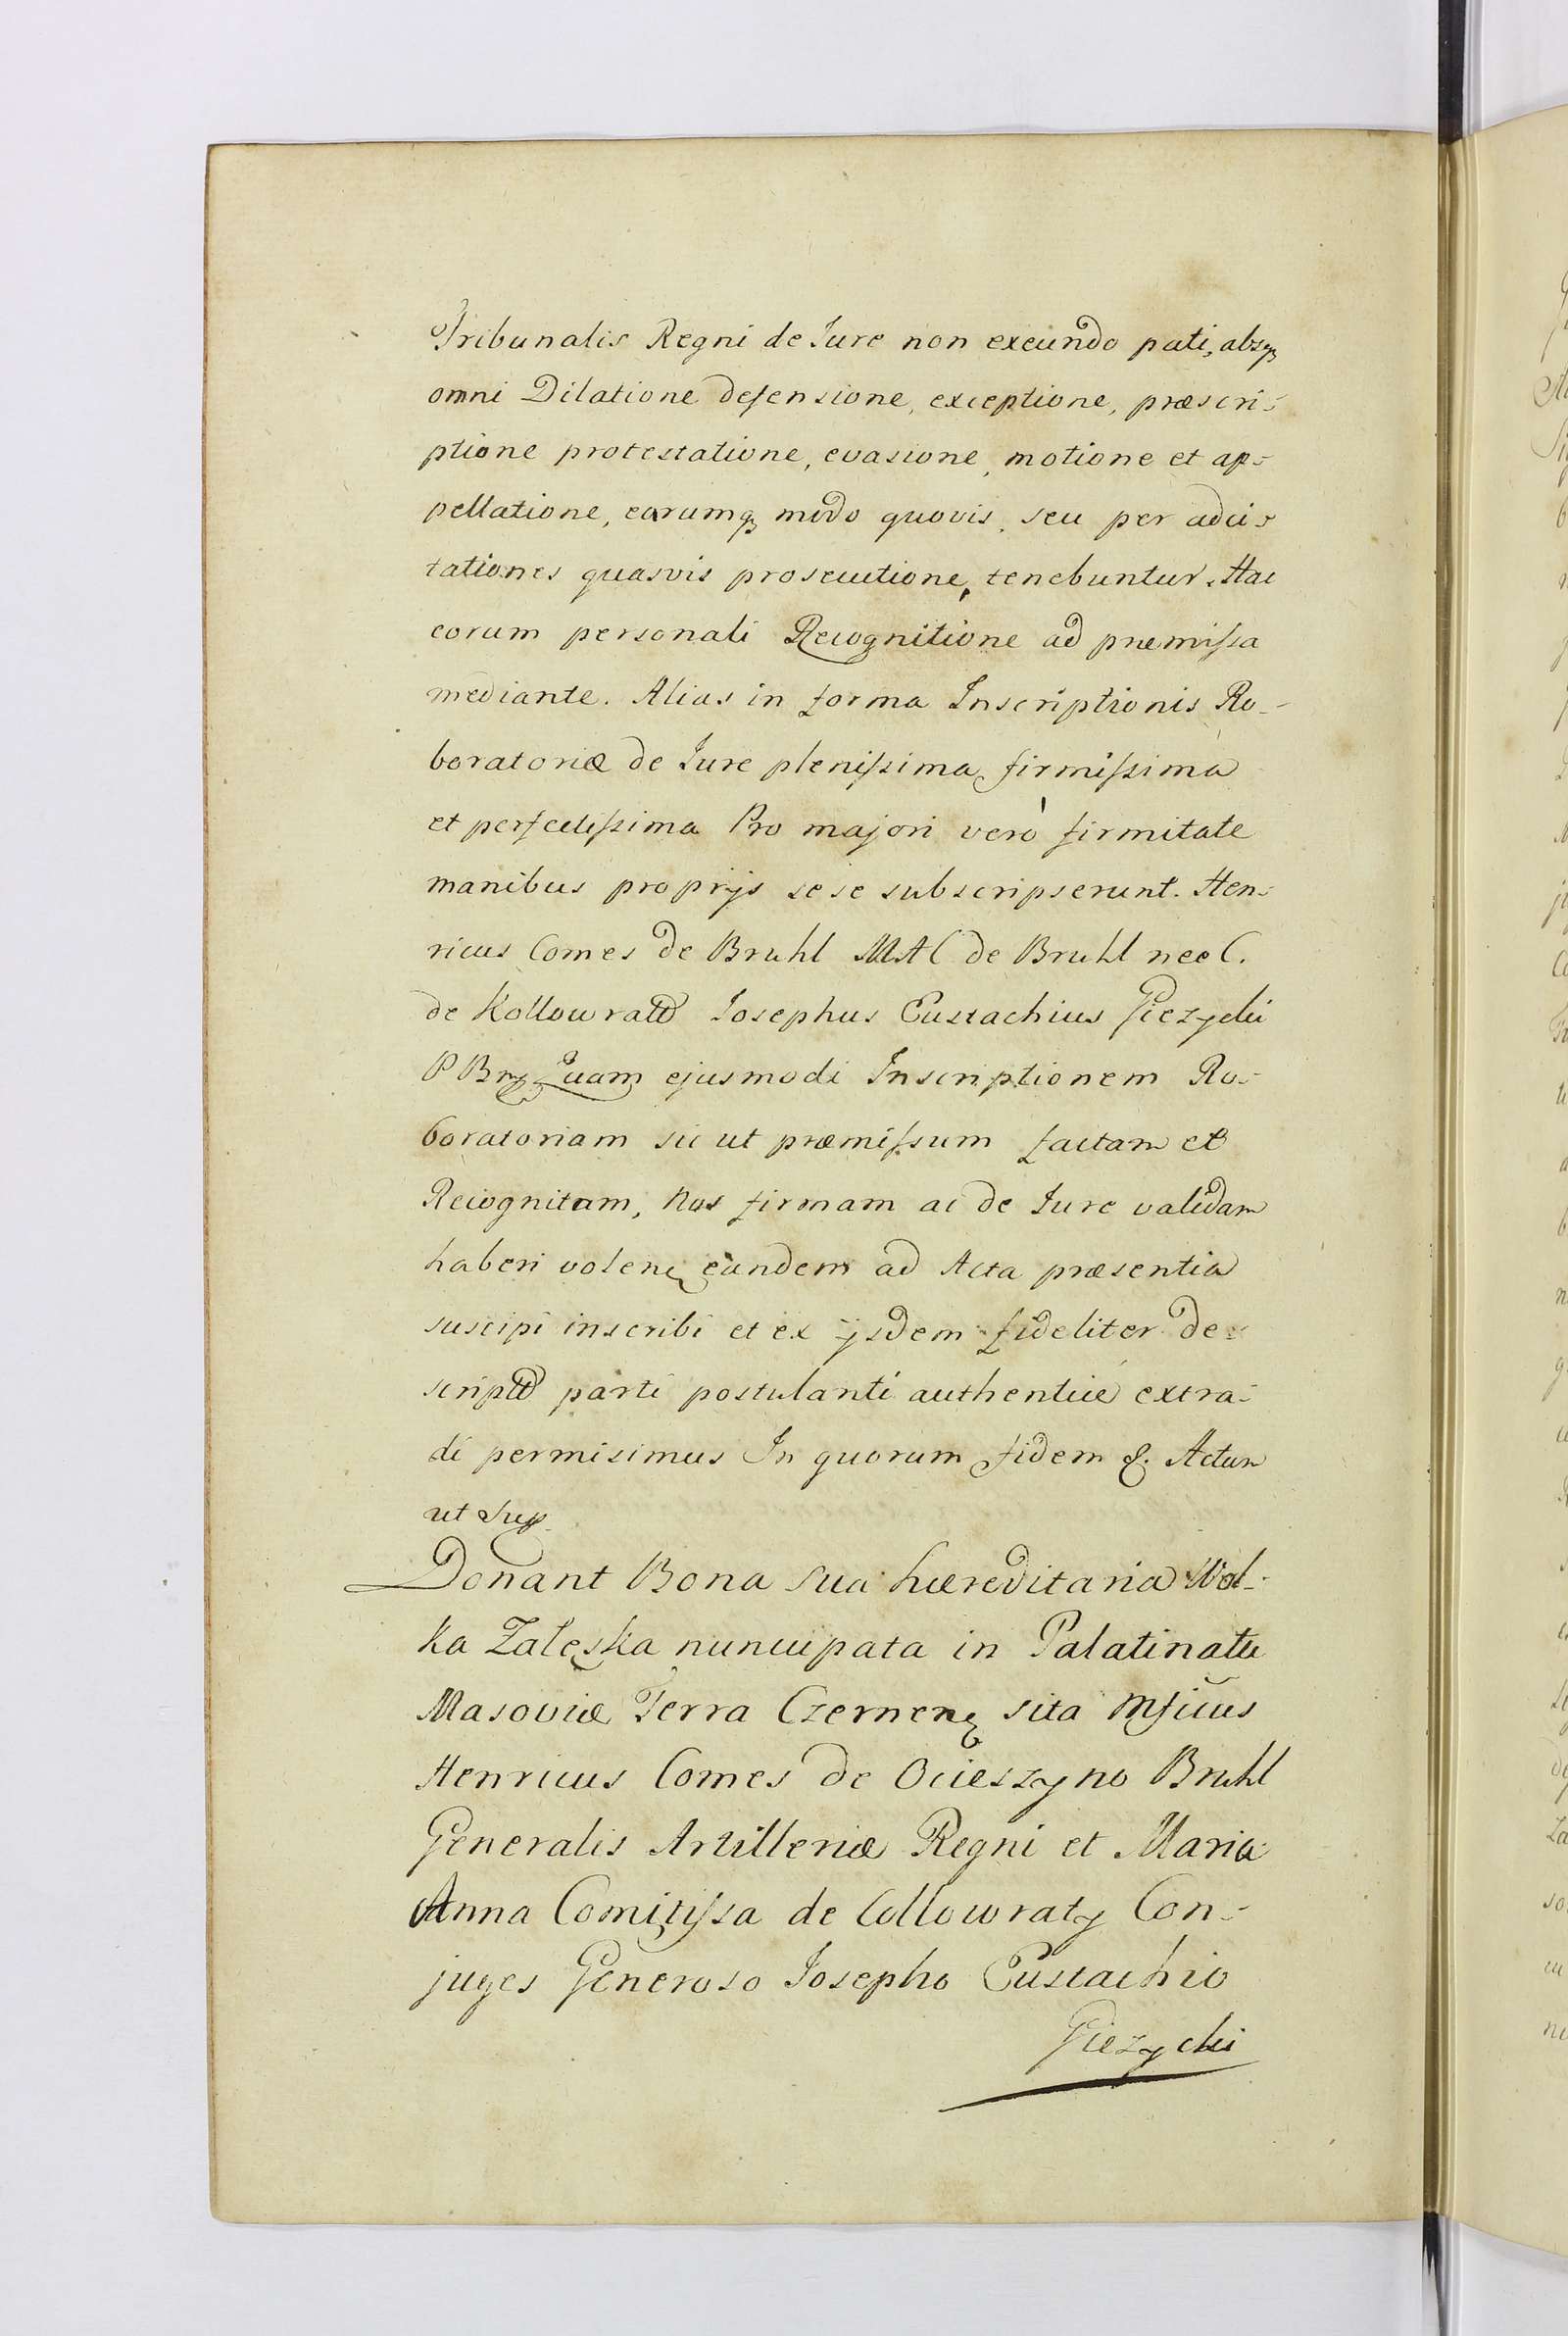 Tribunalis Regni de Iure non exeundo pati, absqꝫ
omni Dilatione defensione, exceptione, præscri-
ptione protestatione, evasione, motione et ap-
pellatione, earumqꝫ modo quovis, seu per adci-
tationes quasvis prosecutione, tenebuntur. Hac
eorum personali Recognitione ad præmissa
mediante. Alias in forma Inscriptionis Ro-
boratoriæ de Iure plenissima firmissima
et perfectissima Pro majori verò firmitate
manibus proprijs sese subscripserunt. Hen-
ricus Comes de Bruhl MAC de Bruhl nee C.
de Kollowratt Iosephus Eustachius Giezycki
P Brꝫ Quam ejusmodi Inscriptionem Ro-
boratoriam sic ut præmissum factam et
Recognitam, Nos firmam ac de Iure validam
haberi volenꝫ eandem ad Acta præsentia
suscipi inscribi et ex ijsdem fideliter de-
scriptt parti postulanti authentice extra-
di permisimus In quorum fidem &. Actum
ut Sup.
Donant Bona sua hæreditaria Wol-
ka Zaleska nuncupata in Palatinatu
Masoviæ Terra Czernenꝫ sita Mficus
Henricus Comes de Ocieszyno Bruhl
Generalis Artilleriæ Regni et Maria
Anna Comitissa de Collowraty Con-
juges Generoso Iosepho Eustachio
Giezycki